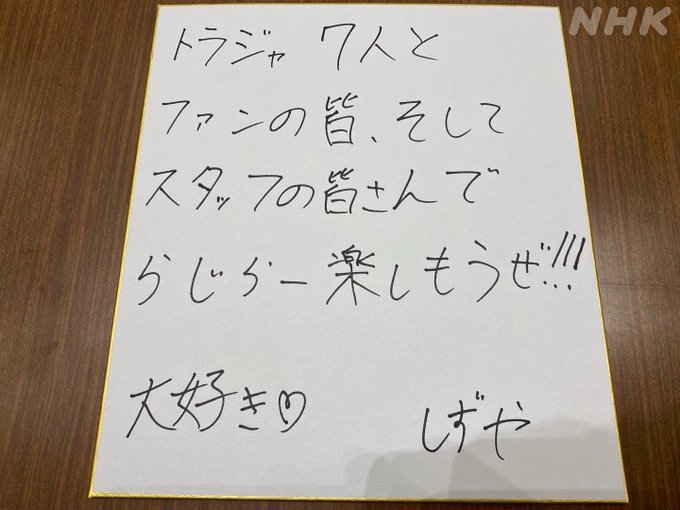 NHK
トラジャ 7人と
ファンの皆、そして
スタッフの皆さんで
らじらー楽しもうぜ!!!
大好き♡
しずや